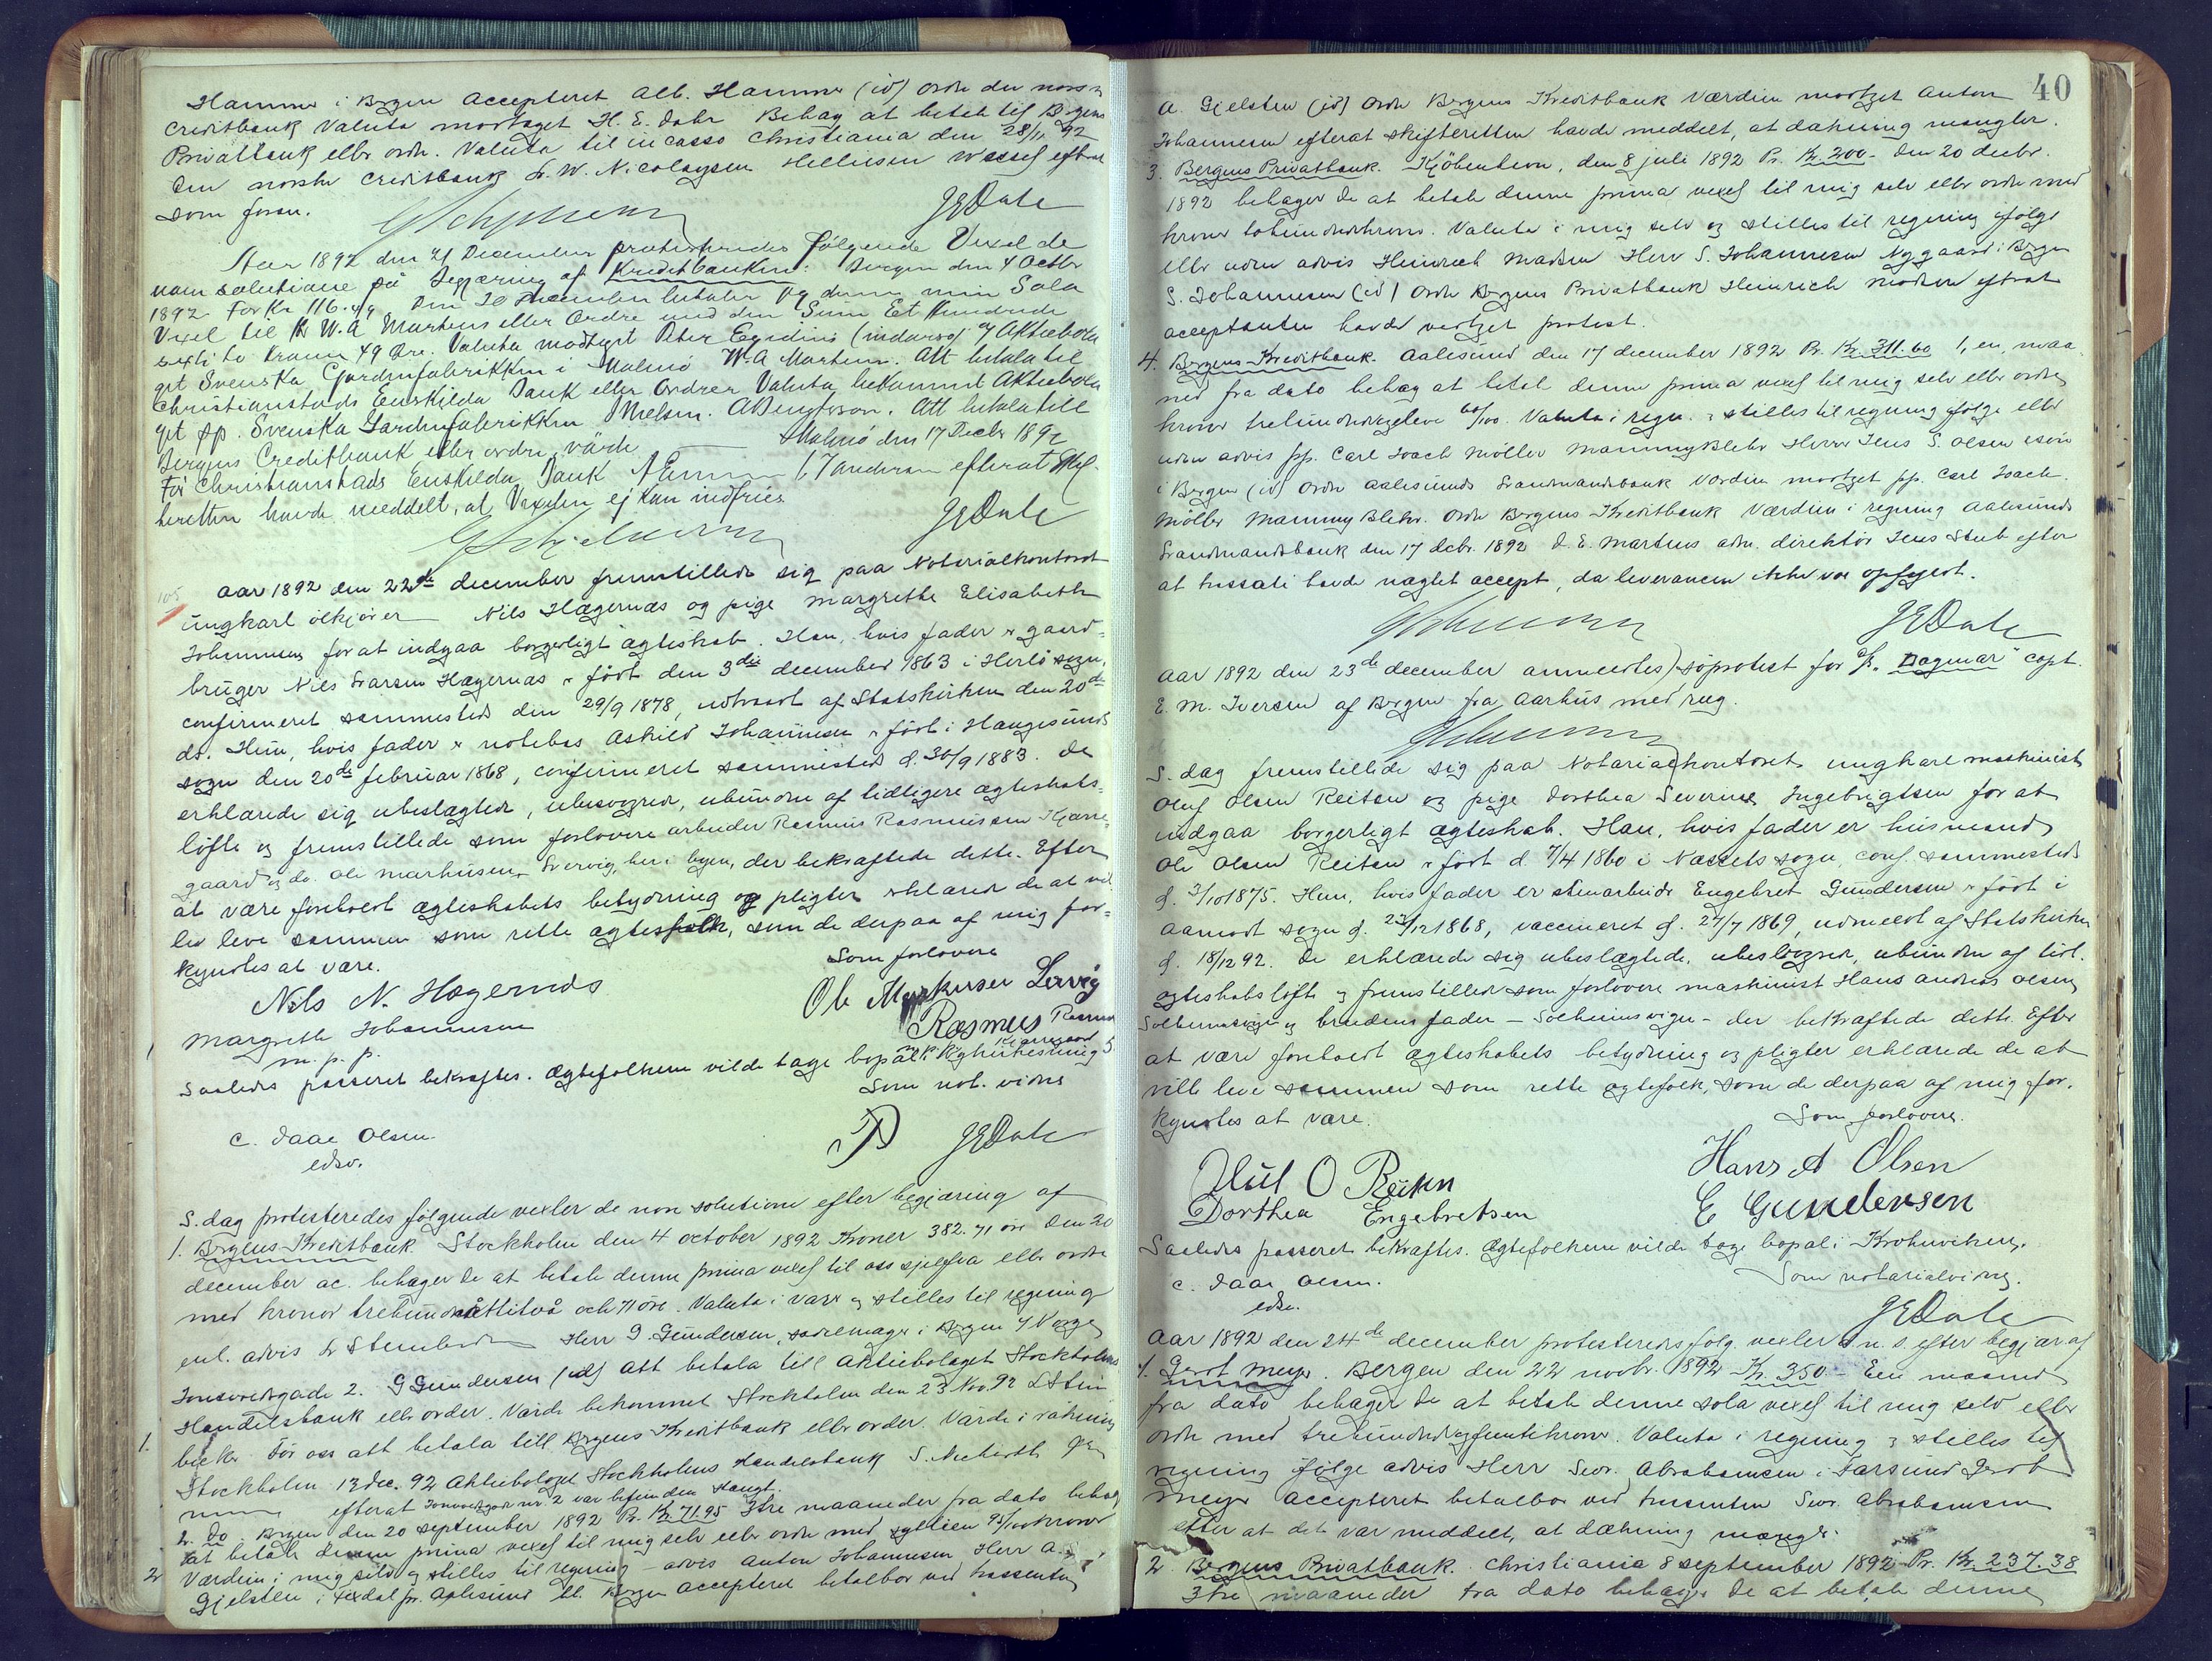 Hammer i Bergen Accepteret Alb. Hammer (id) Ordre den norske
Creditbank Valuta modtaget H. E. Dahr Behag at betale til Bergens
Privatbank eller ordre. Valuta til incasso Christiania den 28/11 92
Den norske Creditbank W. Nicolaysen Helliesen Wessel efterat
som foran.
GEDahl
Aar 1892 den 21 December protesteredes følgende Vexel de
non solutione på Begjæring af Kreditbanken: Bergen den 4 Octbr
1892. For Kr 116. 49 Den 20 December betaler jeg denne min Sola
Vexel til Hr W. A Martens eller Ordre med den Sum Et Hundrede
sexten Kroner 49 Øre. Valuta modtaget Peter Egidius (indorss) Aktiebola
get Svenska Gardinfabrikken i Malmö W. A Martens. Att betala til
Christianstads Enskilda Bank eller Ordrer Valuta bekommet Aktiebola
get pp. Svenska Gardinfabrikken Nielsen. A Bengtsson. Att betala till
Bergens Creditbank eller ordre, värde Malmö den 17 Decbr 1892
För Christianstads Enskilda Bank efterat Skif-
teretten havde meddelt, at Vexelen ej kan indfries
GEDahl
105
Aar 1892 den 22de december fremstillede sig paa Notarialkontoret
ungkarl ølkjører Nils Hægernæs og pige Margrethe Elisabeth
Johannesen for at indgaa borgerligt ægteskab. Han, hvis fader er gaard-
bruger Nils Larsen Hægernæs er født den 3die december 1863 i Herlø sogn,
confirmeret sammesteds den 29/9 1878, udtraadt af Statskirken den 20de
ds. Hun, hvis fader er notebas Askild Johannesen er født i Haugesunds
sogn den 20de februar 1868, confirmeret sammesteds d. 30/9 1883. De
erklærede sig ubeslægtede, ubesvogrede, ubundne af tidligere ægteskabs-
løfte og fremstillede som forlovere arbeider Rasmus Rasmussen Kjærre-
gaard og do. Ole Markusen Lervig, her i byen, der bekræftede dette. Efter
at være foreholdt ægteskabets betydning og pligter erklærede de at vil-
le leve sammen som rette ægtesfolk, som de derpaa af mig for-
kyndtes at være.
Som forlovere
Nils N. Hægernæs
Ole Markusen Lervig
Margrethe Johannesen
Rasmus Rasmus
m. p. p.
Kjærregaard
Saaledes passeret bekræftes. Ægtefolkene vilde tage bopæl
Som not. vidne
C. Daae Olsen
edsv.
GEDahl
S. dag protesteredes følgende vexler de non solutione efter begjæring af
1. Bergens Kreditbank Stockholm den 4 october 1892 Kroner 382. 71 öre Den 20
december ac. behager De at betale denne prima vexel til oss sjelfva eller ordre
med kronor trehundraåttitvå och 71 öre. Valuta i varer og stilles til regning
enl. advis Herr G. Gundersen, sadelmager i Bergen
Jonsvoldsgade 2. G Gundersen (id) Att betala till Aktiebolaget Stockholms
Handelsbank eller order. Värde bekommet Stockholm den 23 Nov. 92
För oss att betala till Bergens Kreditbank eller order. Värde i räkning
1.
Stockholm 13 dec. 92 Aktiebolaget Stockholms Handelsbank
efterat Jonsvoldsgade nr. 2 var befunden stængt.
2. Do. Bergen den 20 september 1892 Pr. Kr 71.95 3tre maaneder fra dato behag
at betale denne prima vexel til mig selv eller ordre med syttien 95/100 kroner
2
Værdien i mig selv og stilles til regning advis Anton Johannesen Herr A.
Gjelsten i Texdal pr. Aalesund Bergen accepteret betalbar ved trassenten
40
A. Gjelsten (id) Ordre Bergens Kreditbank Værdien modtget Anton
Johannesen efterat skifteretten havde meddelt, at dækning mangler.
3. Bergens Privatbank. Kjöbenhavn, den 8 juli 1892 Pr. Kr. 200.- Den 20 decbr.
1892 behager De at betale denne prima vexel til mig selv eller ordre med
kroner tohundredekroner. Valuta i mig selv og stilles til regning ifølge
eller uden advis Heinrich Madsen Herr S. Johannesen Nygaard i Bergen
S. Johannesen (id) Ordre Bergens Privatbank Heinrich Madsen efterat
acceptanten havde vedtget protest.
4. Bergens Kreditbank. Aalesund den 17 december 1892 Pr. Kr. 311.60 1, en maa-
ned fra dato behag at betale denne prima vexel til mig selv eller ordre
kroner trehundredeogelleve 60/100. Valuta i regn. og stilles til regning ifølge eller
uden advis pp. Carl Joach Møller Manning Blehr Herrer Jens S. Olsen & søn
i Bergen (id) Ordre Aalesunds Landmandsbank Værdien modtget pp. Carl Joach.
Møller Manning Blehr. Ordre Bergens Kreditbank Værdien i regning Aalesunds
Landmandsbank den 17 decbr. 1892 J. E. Martens adm. direktør Jens Stub efter
at trassati havde nægtet accept, da leverancen ikke var opfyldt.
GEDahl
Aar 1892 den 23de december anmeldtes søprotest for D/S. "Dagmar" capt.
E. M. Iversen af Bergen fra Aarhus med rug.
S. dag fremstillede sig paa Notarialkontoret ungkarl maskinist
Oluf Olsen Reiten og pige Dorthea Severine Ingebrigtsen for at
indgaa borgerligt ægteskab. Han, hvis fader er husmand
Ole Olsen Reiten er født d. 7/4 1860 i Næssets sogn, conf. sammesteds
d. 3/10 1875. Hun, hvis fader er stenarbeider Engebret Gundersen er født i
Aamodt sogn d. 23/12 1868, vaccineret d. 27/7 1869, udmeldt af Statskirken
d. 18/12 92. De erklærede sig ubeslægtede, ubesvogrede, ubundne af tidl.
ægteskabsløfte og fremstillede som forlovere maskinist Hans Andreas Olsen,
Solheimsvigen og brudens fader - Solheimsvigen - der bekræftede dette. Efter
at være foreholdt ægteskabets betydning og pligter erklærede de at
ville leve sammen som rette ægtefolk, som de derpaa af mig for-
kyndtes at være.
Som forlovere.
Oluf O Reiten
Hans A Olsen
Dorthea Engebretsen
E Gundersen
Saaledes passeret bekræftes. Ægtefolkene vilde tage bopæl i Krohnviken.
C. Daae Olsen.
Som notarialvidne.
edsv.
GEDahl
Aar 1892 den 24de december protesteredes følg. vexler d. n. s. efter begjær af
1. Gerdt Meyer. Bergen den 22 novbr. 1892 Kr. 350.- Een maaned
fra dato behager De at betale denne sola vexel til mig selv eller
ordre med trehundredeogfemtikroner. Valuta i regning og stilles til
regning ifølge advis Herr Sevr. Abrahamsen i Farsund Gerdt
Meyer accepteret betalbar ved trassenten Sevr. Abrahamsen
efter at det var meddelt, at dækning mangler.
2. Bergens Privatbank. Christiania 8 september 1892 Pr. Kr. 237.38
3tre maaneder fra dato behager De at betale denne